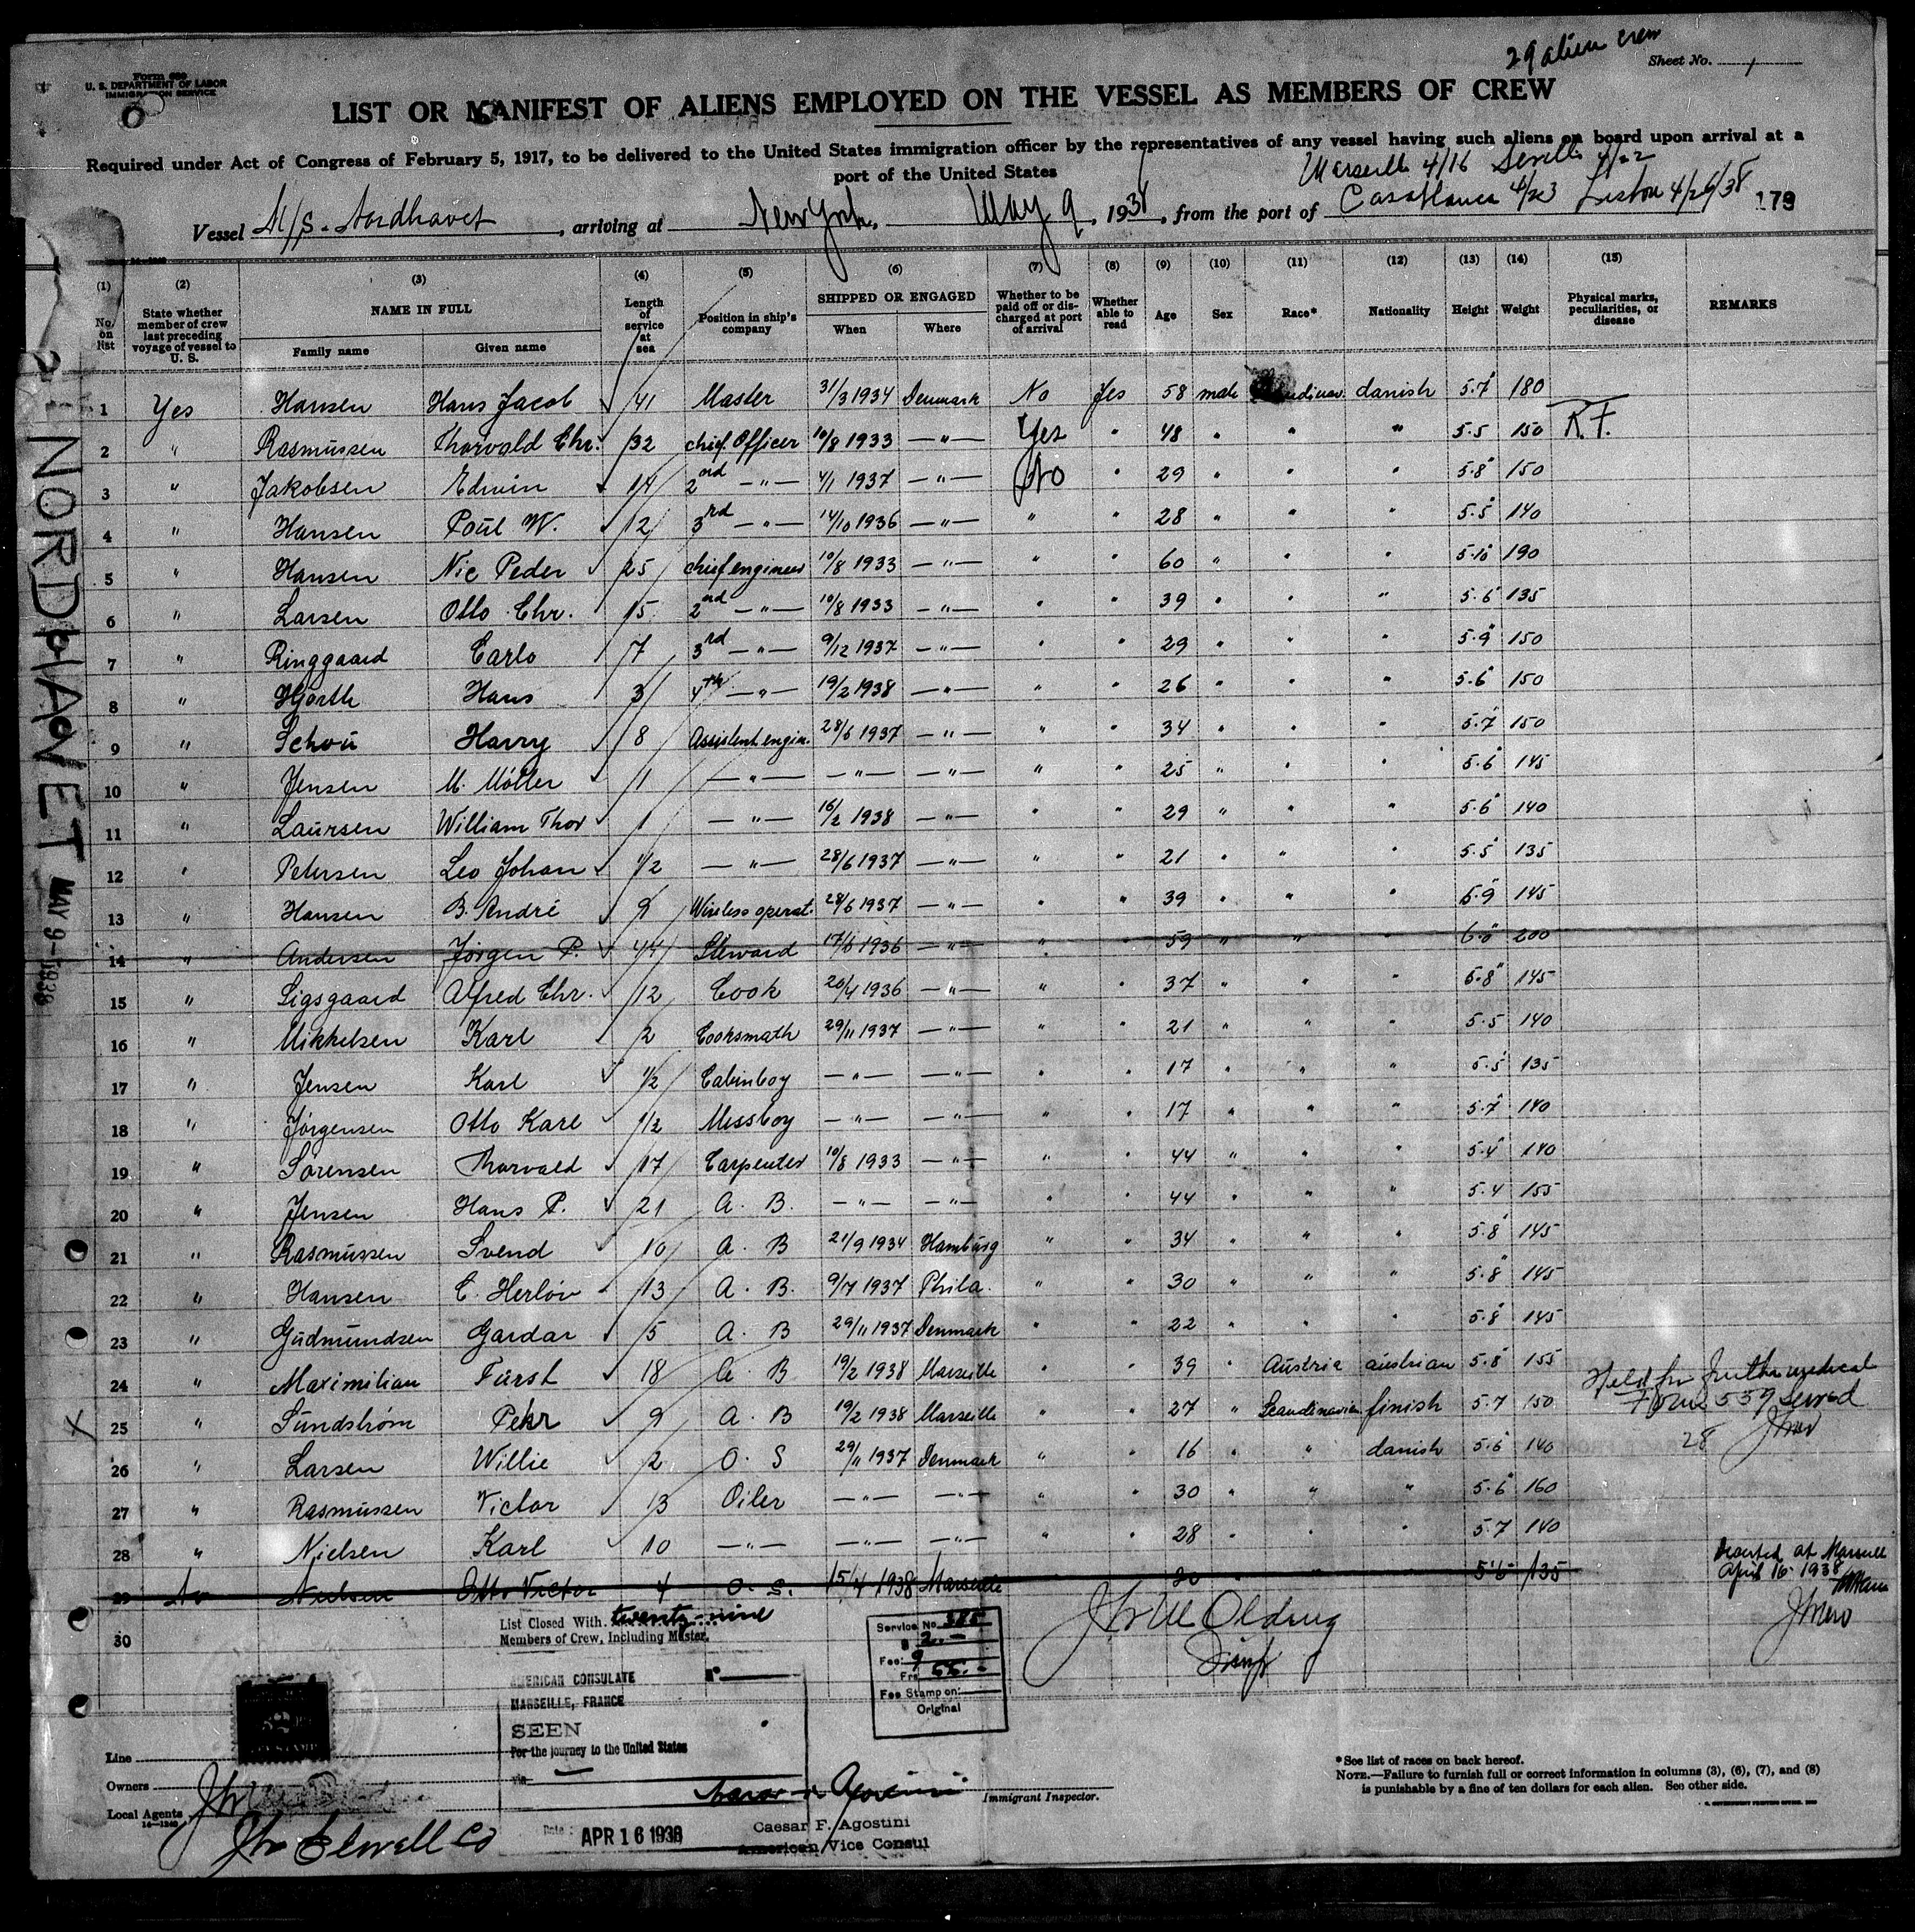 29 alien crew
Form 689
U. S. DEPARTMENT OF LABOR
IMMIGRATION SERVICE
Sheet No. 1
LIST OR MANIFEST OF ALIENS EMPLOYED ON THE VESSEL AS MEMBERS OF CREW
Required under Act of Congress of February 5, 1917, to be delivered to the United States immigration officer by the representatives of any vessel having such aliens on board upon arrival at a
port of the United States
Marseille 4/16 Sevilla 4/22
Vessel M/S. Nordhavet, arriving at New York, May 9, 1938, from the port of Casablanca 4/23 Lisbon 4/26/38 179
(1) (2) (3) (4) (5) (6) (7) (8) (9) (10) (11) (12) (13) (14) (15)
No. on list State whether member of crew last preceding voyage of vessel to U. S. NAME IN FULL Family name Given name Length of service at sea Position in ship's company SHIPPED OR ENGAGED When Where Whether to be paid off or discharged at port of arrival Whether able to read Age Sex Race* Nationality Height Weight Physical marks, peculiarities, or disease REMARKS
1 Yes Hansen Hans Jacob 41 Master 31/3 1934 Denmark No Yes 58 male danish 5.7 180
2 " Rasmussen Thorvald Chr. 32 chief Officer 10/8 1933 —"— Yes " 48 " " " 5.5 150 R.F.
3 " Jakobsen Edwin 14 2nd —"— 4/1 1937 —"— No " 29 " " " 5.8 150
4 " Hansen Poul W. 12 3rd —"— 14/10 1936 —"— " " 28 " " " 5.5 140
5 " Hansen Nic Peder 25 chief engineer 10/8 1933 —"— " " 60 " " " 5.10 190
6 " Larsen Otto Chr. 15 2nd —"— 10/8 1933 —"— " " 39 " " " 5.6 135
7 " Ringgaard Carlo 7 3rd —"— 9/12 1937 —"— " " 29 " " " 5.9 150
8 " Hjorth Hans 3 4th —"— 19/2 1938 —"— " " 26 " " " 5.6 150
9 " Schou Harry 8 Assistent engin. 28/6 1937 —"— " " 34 " " " 5.7 150
10 " Jensen M. Möller 1 —"— —"— —"— " " 25 " " " 5.6 145
11 " Laursen William Thor 1 —"— 16/2 1938 —"— " " 29 " " " 5.6 140
12 " Petersen Leo Johan 1/2 —"— 28/6 1937 —"— " " 21 " " " 5.5 135
13 " Hansen B. André 9 Wireless operat. 28/6 1937 —"— " " 39 " " " 5.9 145
14 " Andersen Jörgen P. 44 Steward 17/6 1936 —"— " " 59 " " " 6.0 200
15 " Sigsgaard Alfred Chr. 12 Cook 20/4 1936 —"— " " 37 " " " 5.8 145
16 " Mikkelsen Karl 2 Cooksmath 29/11 1937 —"— " " 21 " " " 5.5 140
17 " Jensen Karl 1/2 Cabinboy —"— —"— " " 17 " " " 5.5 135
18 " Jörgensen Otto Karl 1/2 Messboy —"— —"— " " 17 " " " 5.7 140
19 " Sörensen Thorvald 17 Carpenter 10/8 1933 —"— " " 44 " " " 5.4 140
20 " Jensen Hans P. 21 A. B. —"— —"— " " 44 " " " 5.4 155
21 " Rasmussen Svend 10 A. B 21/9 1934 Hamburg " " 34 " " " 5.8 145
22 " Hansen C. Herlöv 13 A. B. 9/7 1937 Phila. " " 30 " " " 5.8 145
23 " Gudmundsen Gardar 5 A. B 29/11 1937 Denmark " " 22 " " " 5.8 145
24 " Maximilian Fürst 18 A. B 19/2 1938 Marseille " " 39 " Austria austrian 5.8 155
Held for further medical
Form 559 served
25 " Sundström Pehr 9 A. B 19/2 1938 Marseille " " 27 " Scandinavian finish 5.7 150
28
26 " Larsen Willie 2 O. S 29/11 1937 Denmark " " 16 " " danish 5.6 140
27 " Rasmussen Victor 13 Oiler —"— —"— " " 30 " " " 5.6 160
28 " Nielsen Karl 10 —"— —"— —"— " " 28 " " " 5.7 140
29 No Nielsen Otto Victor 4 O. S. 15/4 1938 Marseille 20 5.6 135
Deserted at Marseille
April 16 1938
30
List Closed With twenty-nine
Members of Crew, Including Master.
Service No. 385
$ 2.-
Fee: 9
Frs
Fee Stamp on:
Original
AMERICAN CONSULATE
MARSEILLE, FRANCE
SEEN
For the journey to the United States
via
Date: APR 16 1938
Caesar F. Agostini
American Vice Consul
Immigrant Inspector.
Line
Owners
Local Agents
14—1240
*See list of races on back hereof.
NOTE.—Failure to furnish full or correct information in columns (3), (6), (7), and (8)
is punishable by a fine of ten dollars for each alien. See other side.
NORDHAVET
MAY 9-1938